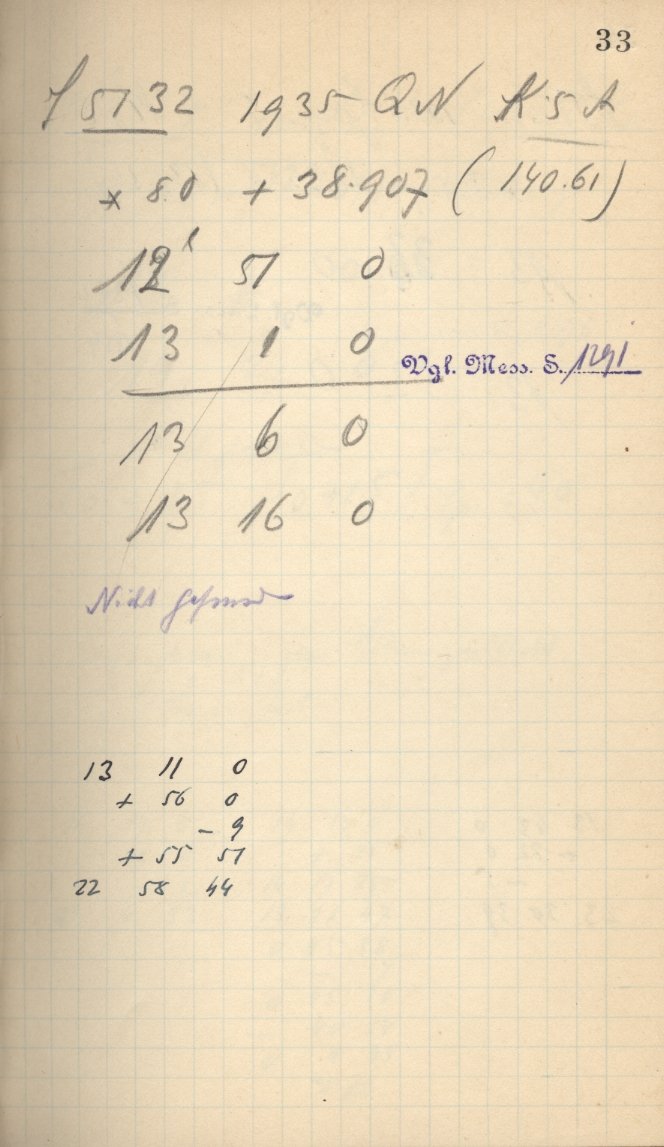 33
5132 1935 QN K 5 A
× 8.0 + 38.907 (140.61)
12 51 0
13 1 0
Vgl. Mess. S. 1291
13 6 0
13 16 0
Nicht
13 11 0
+ 56 0
- 9
+ 55 51
22 58 44